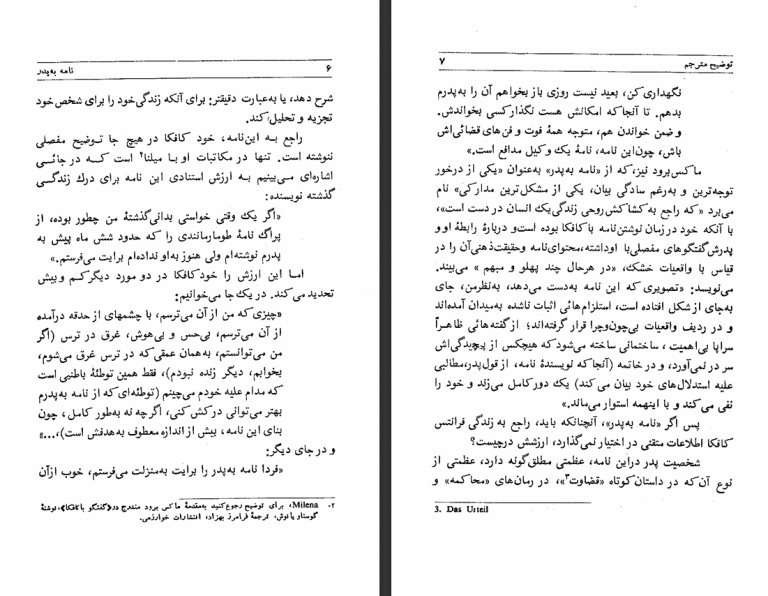 ۶ نامه به‌پدر
شرح دهد، یا به‌عبارت دقیقتر: برای آنکه زندگی‌خود را برای شخص‌خود
تجزیه و تحلیل‌کند.
راجع بـه این‌نامه، خود کافکا در هیچ جا تـوضیح مفصلی
ننوشته است. تنها در مکاتبات او بـا میلنا۲ است کـــه در جائـــی
اشاره‌ای مــی‌بینیم بـه ارزش استنادی این نامه برای درك زندگـــی
گذشته نویسنده:
«اگر یك وقتی خواستی بدانی‌گذشتهٔ من چطور بوده، از
پراگ نامهٔ طومارمانندی را که حدود شش ماه پیش به
پدرم نوشته‌ام ولی هنوز به‌او نداده‌ام برایت می‌فرستم.»
امـا این ارزش را خودکافکا در دو مورد دیگرکم و بیش
تحدید می‌کند. در یك‌جا می‌خوانیم:
«چیزی‌که من از آن می‌ترسم، با چشمهای از حدقه درآمده
از آن می‌ترسم، بی‌حس و بی‌هوش، غرق در ترس (اگر
من می‌توانستم، به‌همان عمقی‌که در ترس غرق می‌شوم،
بخوابم، دیگر زنده نبودم)، فقط همین توطئهٔ باطنی است
که مدام علیه خودم می‌چینم (توطئه‌ای‌که از نامه به‌پدرم
بهتر می‌توانی درکش‌کنی، اگرچه نه به‌طور کامل، چون
بنای این نامه، بیش از اندازه معطوف به‌هدفش است)،...»
و در جای دیگر:
«فردا نامه به‌پدر را برایت به‌منزلت می‌فرستم، خوب ازآن
۲. Milena، برای توضیح رجوع‌کنید به‌مقدمهٔ ماکس برود مندرج در«گفتگو با کافکا»،نوشتهٔ
گوستاو یانوش، ترجمهٔ فرامرز بهزاد، انتشارات خوارزمی.
توضیح مترجم ۷
نگهداری‌کن، بعید نیست روزی باز بخواهم آن را به‌پدرم
بدهم. تا آنجاکه امکانش هست نگذارکسی بخواندش.
و ضمن خواندن هم، متوجه همهٔ فوت و فن‌های قضائی‌اش
باش، چون‌این نامه، نامهٔ یك وکیل مدافع است.»
ماکس‌برود نیز،که از «نامه به‌پدر» به‌عنوان «یکی از درخور
توجه‌ترین و به‌رغم سادگی بیان، یکی از مشکل‌ترین مدارکی» نام
می‌برد «که راجع به‌کشاکش‌روحی زندگی‌یك انسان در دست است»،
با آنکه خود در زمان نوشتن‌نامه باکافکا بوده است‌و دربارهٔ رابطهٔ او و
پدرش‌گفتگوهای مفصلی‌با اوداشته،محتوای‌نامه وحقیقت‌ذهنی‌آن را در
قیاس با واقعیات خشك، «در هرحال چند پهلو و مبهم» می‌بیند.
می‌نویسد: «تصویری که این نامه به‌دست می‌دهد، به‌نظرمن، جای
به‌جای از شکل افتاده است، استلزام‌هائی اثبات ناشده به‌میدان آمده‌اند
و در ردیف واقعیات بی‌چون‌وچرا قرار گرفته‌اند؛ ازگفته‌هائی ظاهراً
سراپا بی‌اهمیت، ساختمانی ساخته می‌شودکه هیچکس از پیچیدگی‌اش
سر در نمی‌آورد، و در خاتمه (آنجا که نویسندهٔ نامه، از قول‌پدر،مطالبی
علیه استدلال‌های خود بیان می کند) یك دور کامل می‌زند و خود را
نفی می‌کند و با اینهمه استوار می‌ماند.»
پس اگر «نامه به‌پدر»، آنچنانکه باید، راجع به زندگی فرانتس
کافکا اطلاعات متقنی در اختیار نمی‌گذارد، ارزشش درچیست؟
شخصیت پدر دراین نامه، عظمتی مطلق‌گونه دارد، عظمتی از
نوع آن‌که در داستان‌کوتاه «قضاوت۳»، در رمان‌های «محاکمه» و
3. Das Urteil